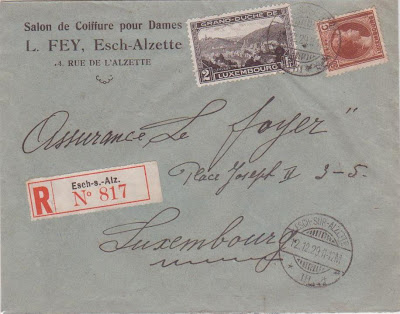 Salon de Coiffure pour Dames
L. FEY, Esch-Alzette
4 RUE DE L'ALZETTE
GRAND-DUCHÉ DE
2
LUXEMBOURG
Assurance Le foyer"
Place Joseph II 3-5.
Luxembourg
R
Esch-s.-Alz.
N° 817
ESCH-SUR-ALZETTE
12.12.29